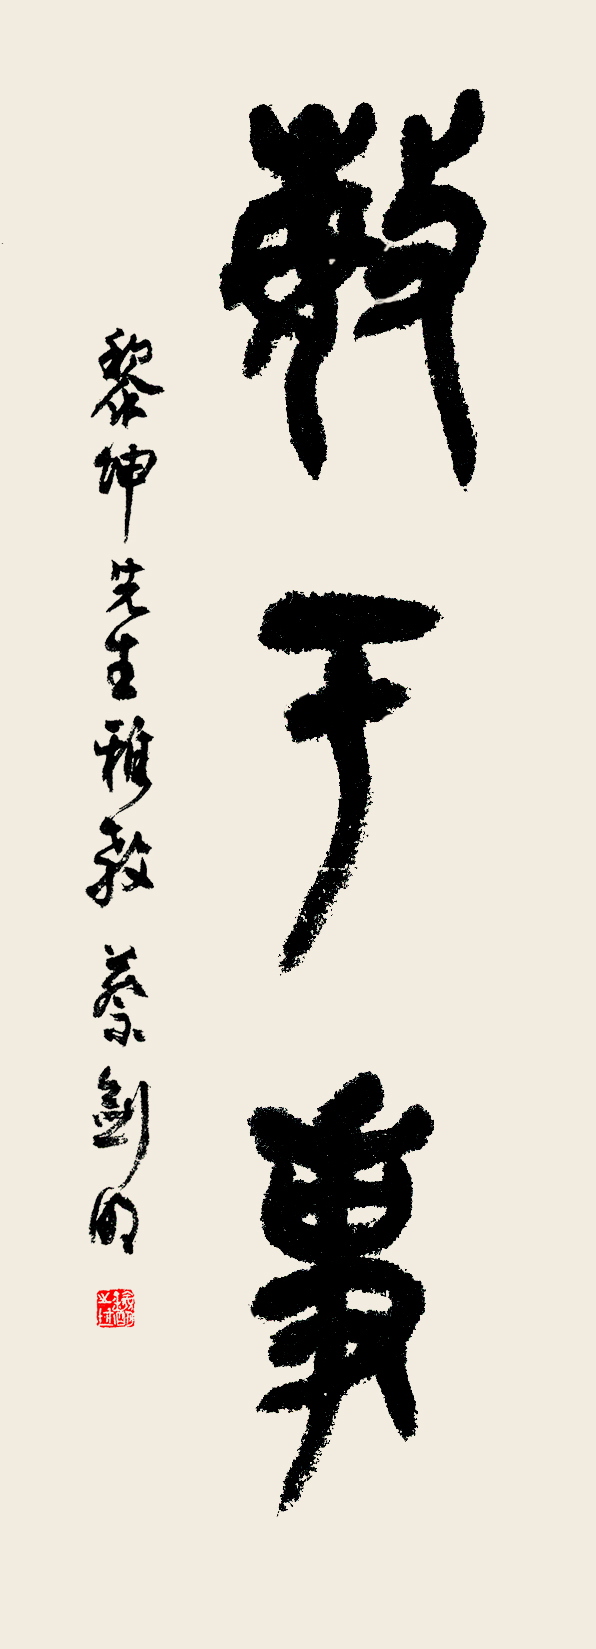 敏于事
黎坤先生雅教 蔡劍明